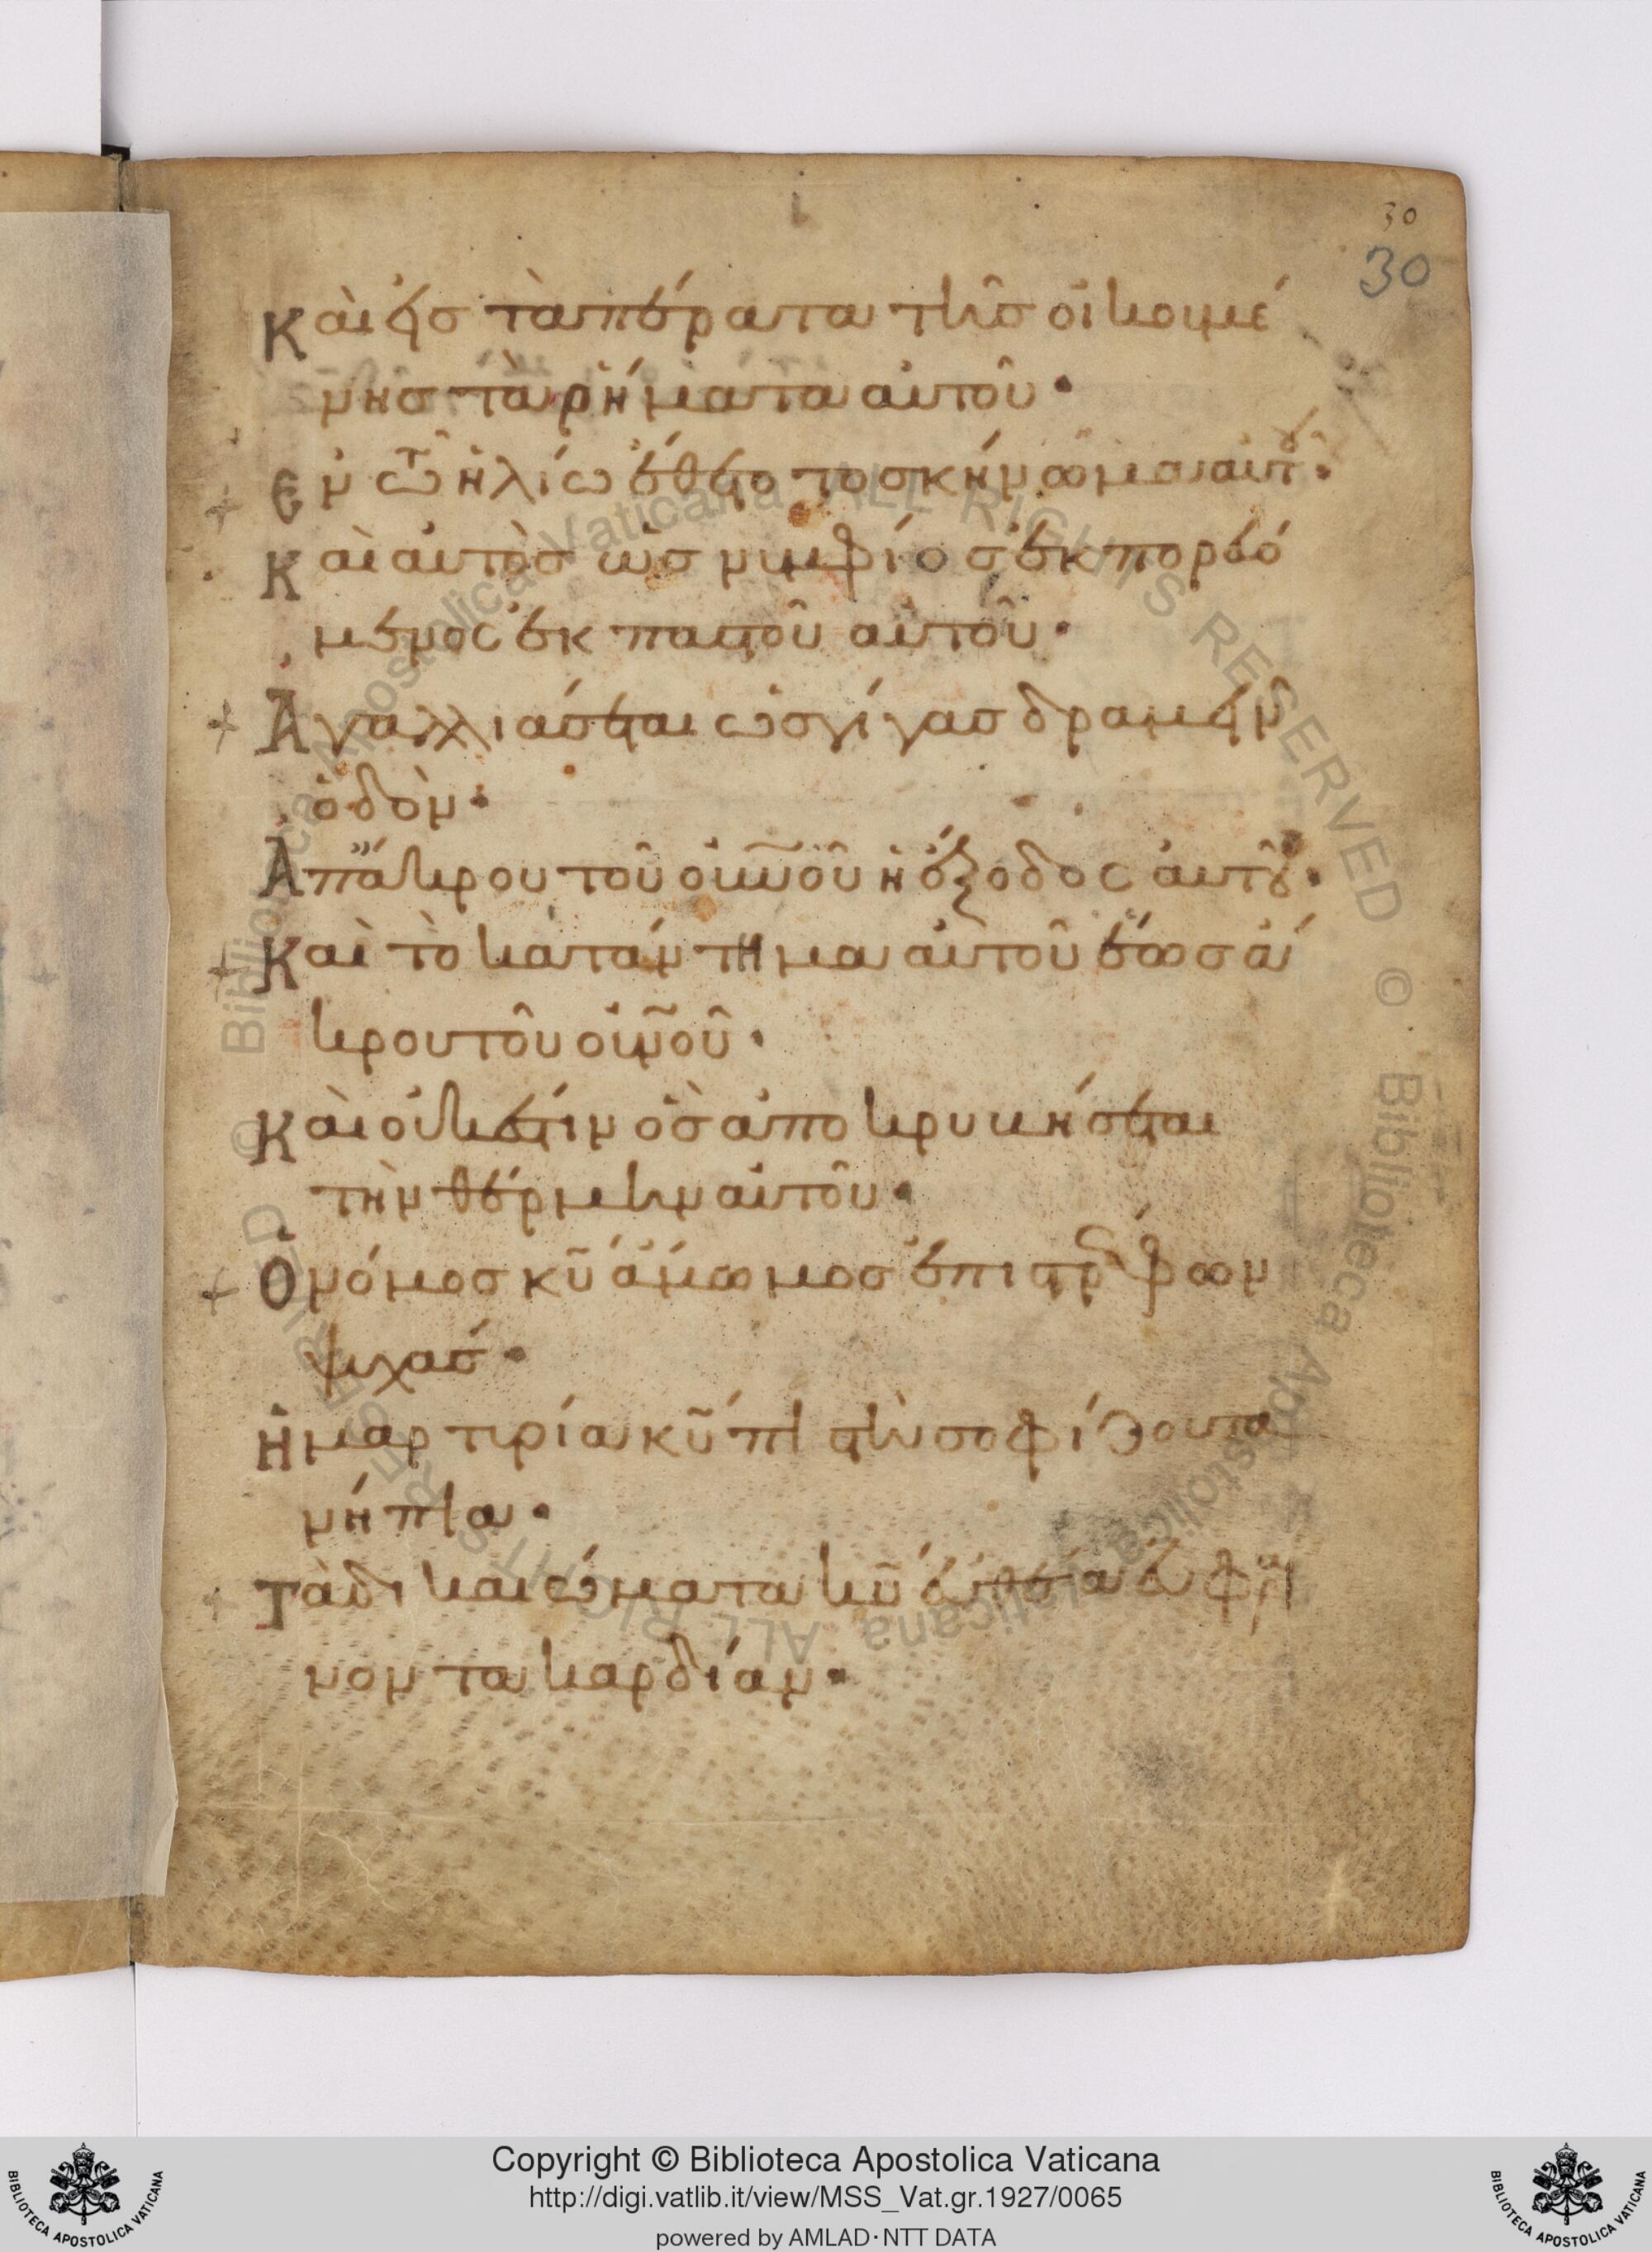 30
30
Καὶ εἰς τὰ πέρατα τῆς οἰκουμέ
νης τὰ ῥήματα αὐτοῦ·
Ἐν τῷ ἡλίῳ ἔθετο το σκήνωμα αὐτοῦ·
Καὶ αὐτὸς ὡς νυμφίος ἐκπορευό
μενος ἐκ παστοῦ αὐτοῦ·
Ἀγαλλιάσεται ὡς γίγας δραμεῖν
ὁδὸν·
Ἀπ ἄκρου τοῦ ουνοῦ ἡ ἔξοδος αὐτοῦ·
Καὶ τὸ κατάντημα αὐτοῦ ἕως ἄ
κρου τοῦ ουνοῦ·
Καὶ οὐκ ἔστιν ὃς ἀποκρυβήσεται
τὴν θέρμην αὐτοῦ·
Ὁ νόμος κυ ἄμωμος ἐπιστρέφων
ψυχάς·
Ἡ μαρτυρία κυ πιστὴ σοφίζουσα
νήπια·
Τὰ δικαιώματα κυ εὐθεῖα εὐφραί
νοντα καρδίαν·
Copyright © Biblioteca Apostolica Vaticana
http://digi.vatlib.it/view/MSS_Vat.gr.1927/0065
powered by AMLAD·NTT DATA
BIBLIOTECA APOSTOLICA VATICANA
BIBLIOTECA APOSTOLICA VATICANA
© Biblioteca Apostolica Vaticana ALL RIGHTS RESERVED © Biblioteca Apostolica Vaticana ALL RIGHTS RESERVED